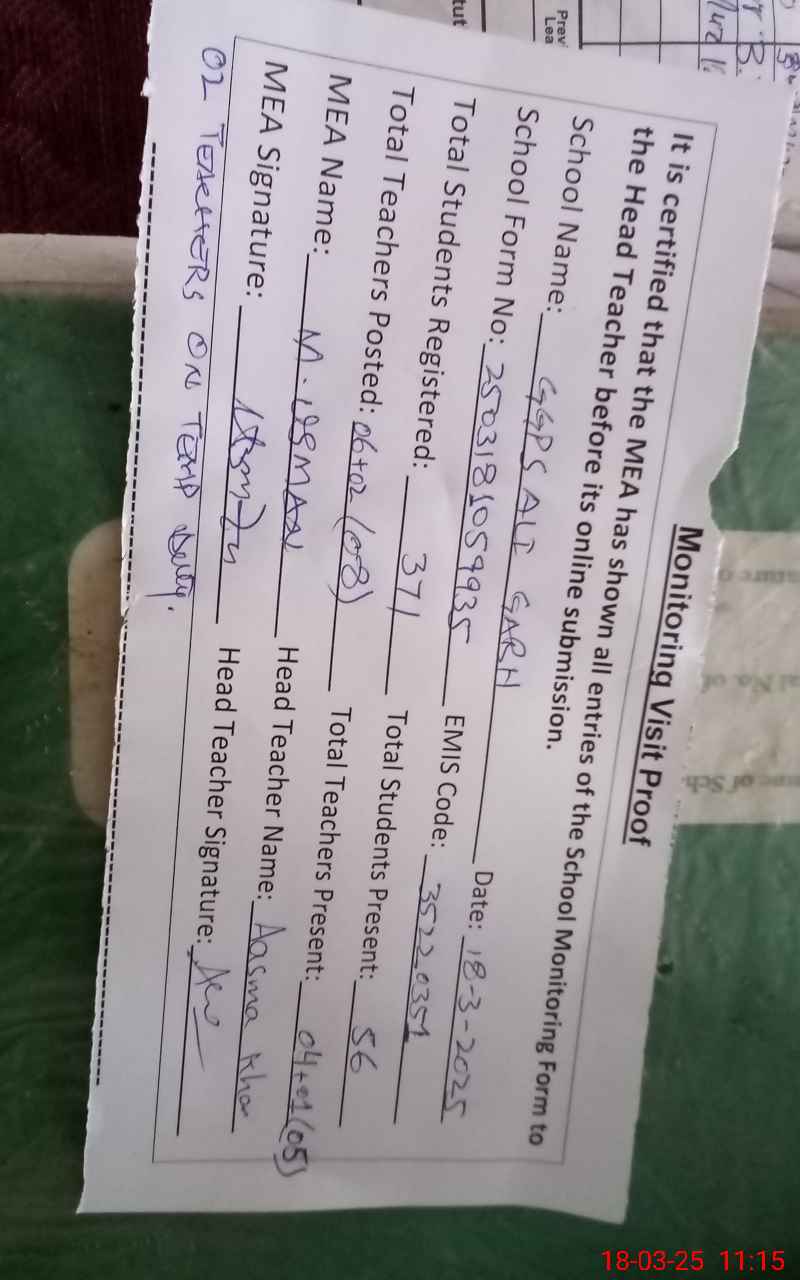 Monitoring Visit Proof
It is certified that the MEA has shown all entries of the School Monitoring Form to
the Head Teacher before its online submission.
School Name: GGPS ALI GARH Date: 18-3-2025
School Form No: 2503181059935 EMIS Code: 35220351
Total Students Registered: 371 Total Students Present: 56
Total Teachers Posted: 06+02 (08) Total Teachers Present: 04+01(05)
MEA Name: M. USMAN Head Teacher Name: Aasma Khan
MEA Signature: Head Teacher Signature:
02 TEACHERS ON TEMP Duty.
Prev
Lea
tut
18-03-25 11:15